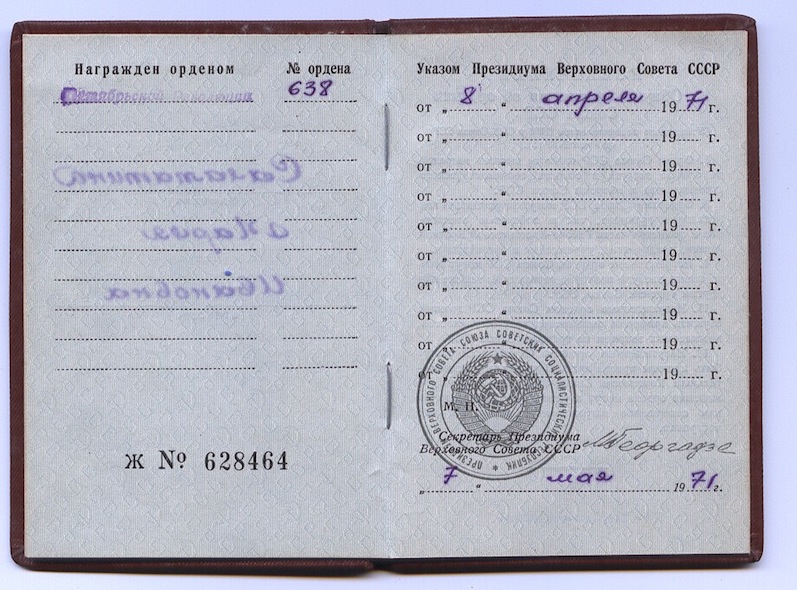 Награжден орденом № ордена
Октябрьской Революции 638
Саламатина
Мария
Ивановна
Ж № 628464
Указом Президиума Верховного Совета СССР
от „ 8 “ апреля 19 71 г.
от „ “ 19 г.
от „ “ 19 г.
от „ “ 19 г.
от „ “ 19 г.
от „ “ 19 г.
от „ “ 19 г.
от „ “ 19 г.
от „ “ 19 г.
от „ “ 19 г.
ПРЕЗИДИУМ ВЕРХОВНОГО СОВЕТА СОЮЗА СОВЕТСКИХ СОЦИАЛИСТИЧЕСКИХ РЕСПУБЛИК
М. П.
Секретарь Президиума
Верховного Совета СССР
М Георгадзе
„ 7 “ мая 19 71 г.